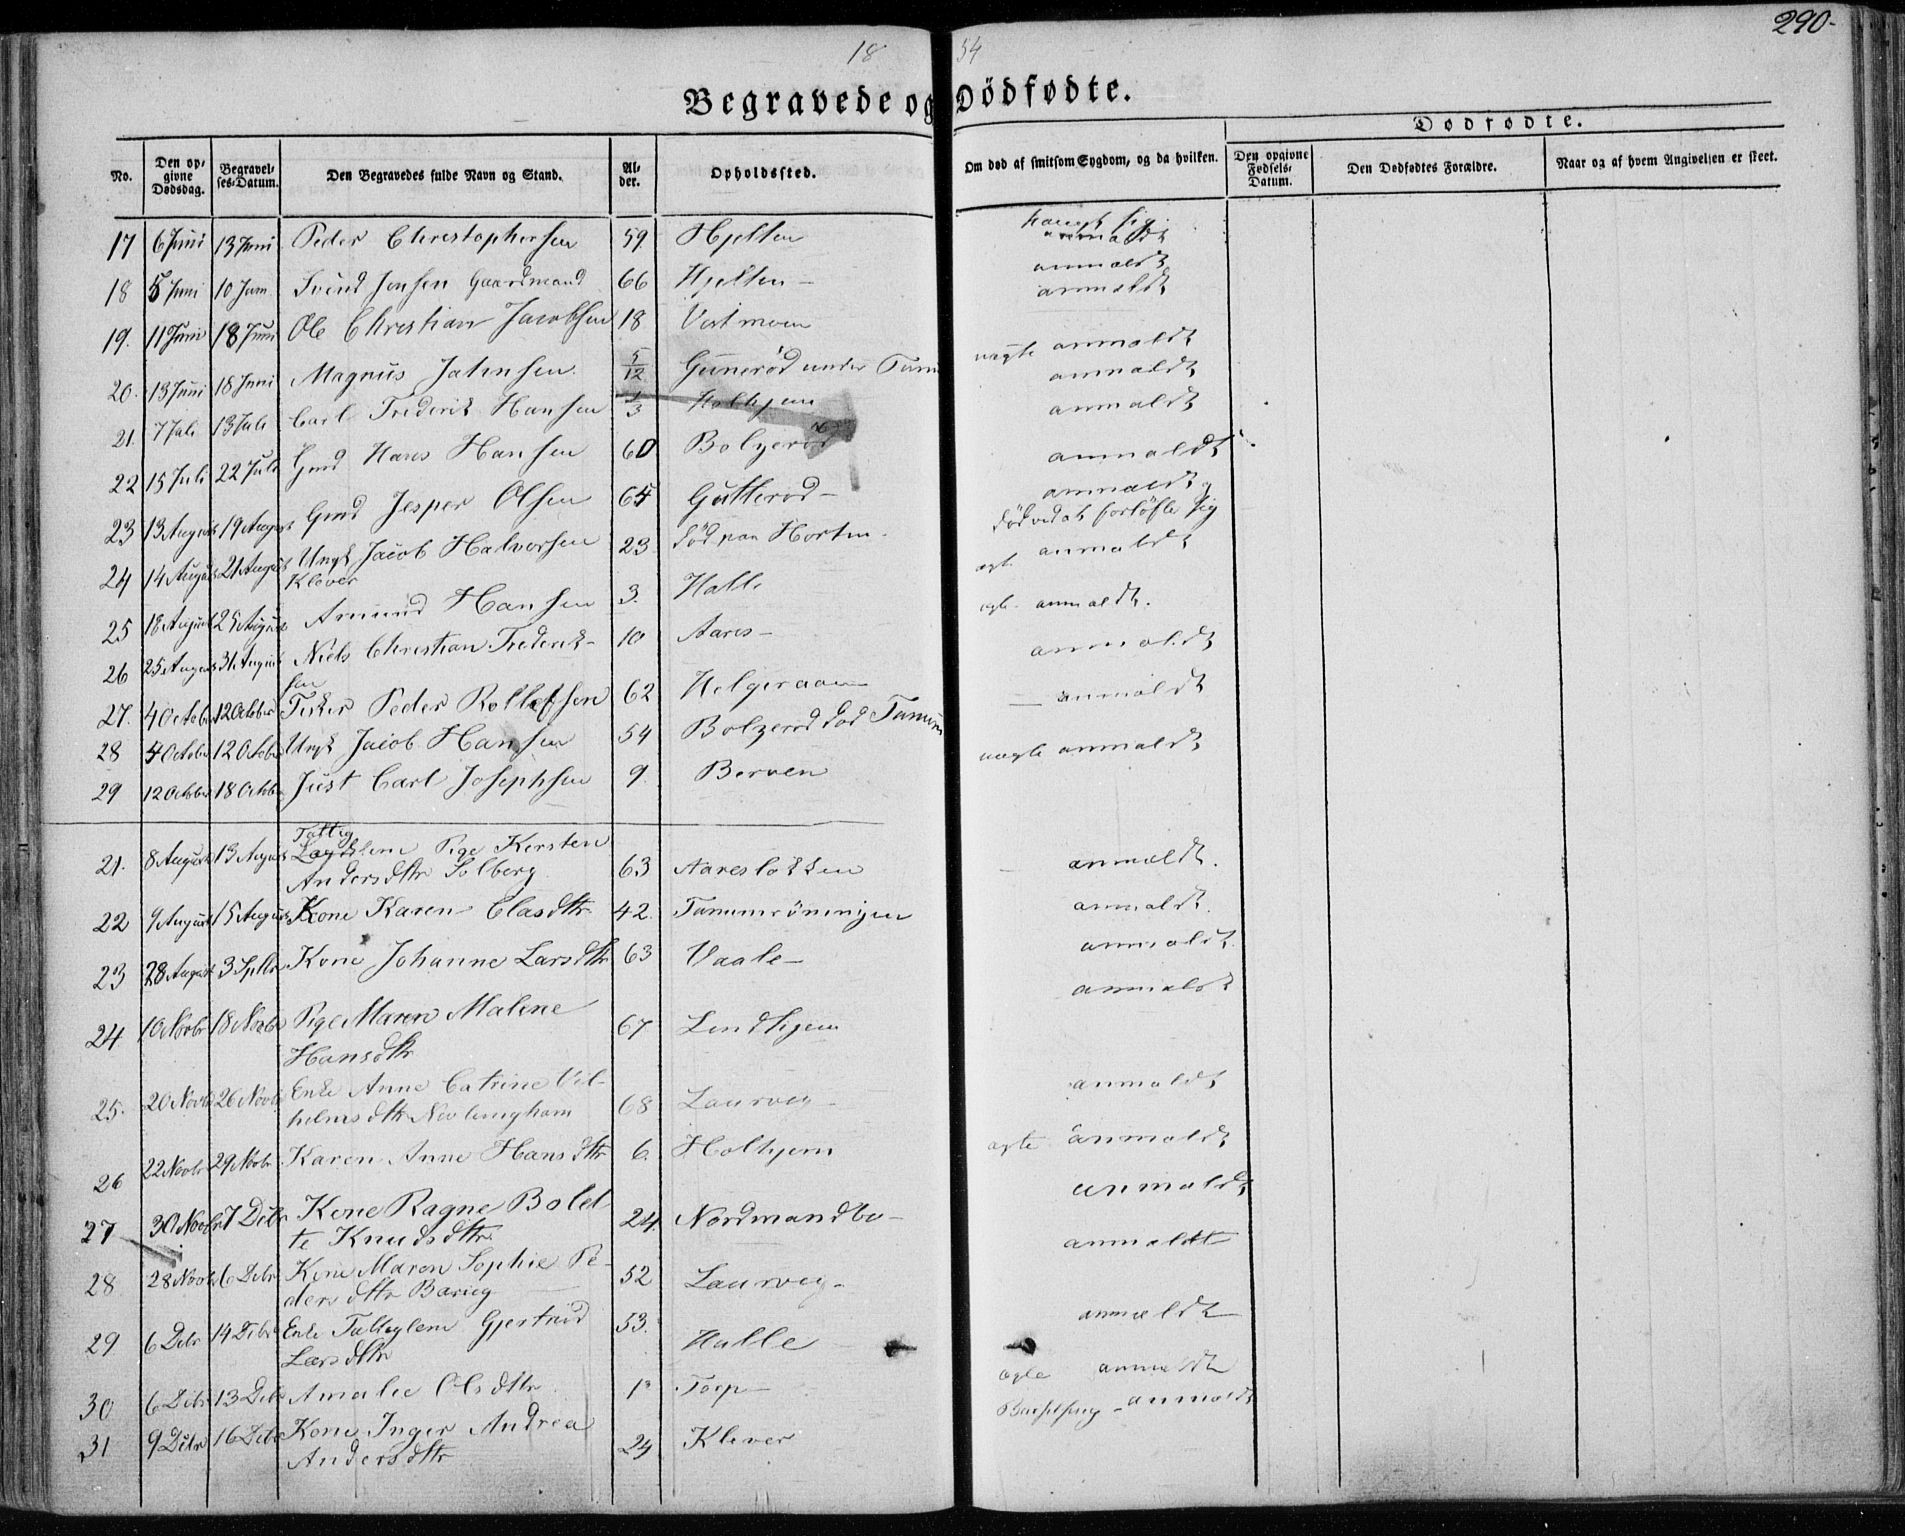 290-
18 54
Begravede og Dödfødte.
Dødfødte.
No. Den opgivne Dødsdag. Begravelses-Datum. Den Begravedes fulde Navn og Stand. Alder. Opholdssted. Om død af smitsom Sygdom, og da hvilken. Den opgivne Fødsels-Datum. Den Dødfødtes Forældre. Naar og af hvem Angivelsen er skeet.
17 6 Juni 13 Juni Peder Christophersen 59. Hjelten hængt sig anmældt
18 5 Juni 10 Juni Svend Jensen Gaardmand 66 Hjelten - anmældt
19. 11 Juni 18 Juni Ole Christian Jacobsen 18 Vestmoen anmældt
20. 13 Juni 18 Juni Magnus Jahnsen 5/12 Gunerød under Tanum uægte anmældt
21. 7 Juli 13 Juli Carl Frederik Hansen 1/3 Holhjem anmældt
22 15 Juli 22 Juli Gmd Hans Hansen 60 Bolzerød anmældt
23 13 August 19 August Gmd Jesper Olsen 65 Gutterød - anmældt
24 14 August 21 August Ungk Jacob Halvorsen 23 død paa Horten. anmældt
Klever
død ved at forløfte sig
25 18 August 25 August Amund Hansen 3. Halle ægt. anmældt
26 25 August 31 August Niels Christian Frederik- 10 Aares - ægte anmældt.
sen
27. 4 October 12 October Fisker Peder Rollefsen 62 Helgeraaen anmældt
28 4 October 12 October Ungk Jacob Hansen 54 Bolzerød død Tanum - anmældt
29 12 October 18 October Just Carl Josephsen 9. Berven uægte anmældt
21. 8 August 13 August Fattig
Lægdslem Pige Kirsten
Andersdttr Solberg 63 Aaresløkken anmældt.
22 9 August 15 August Kone Karen Clasdttr 42. Tanumrönningen anmældt.
23 28 August 3 Sptbr Kone Johanne Larsdttr 63 Vaale - anmældt
24 10 Novbr 18 Novbr Pige Maren Malene 67 Lindhjem anmældt
Hansdttr
25. 20 Novbr 26 Novbr Enke Anne Catrine Vil- 68 Laurvig - anmældt
helmsdttr
26 22 Novbr 29 Novbr Karen Anne Hansdttr 6. Holhjem ægte anmældt
27 30 Novbr 7 Dcbr Kone Ragne Bolet- 24. Nordmandbo - anmældt
te Knudsdttr
28 28 Novbr 6 Dcbr Kone Maren Sophie Pe- 52 Laurvig - anmældt
dersdttr
29 6 Dcbr 14 Dcbr Enke Fattiglem Gjertrud 53. Halle anmældt
Larsdttr
30 6 Dcbr 13 Dcbr Amalie Olsdttr 1 Torp - ægte anmældt
31 9 Dcbr 16 Dcbr Kone Inger Andrea 29 Klever Barselseng - anmældt
Andersdttr